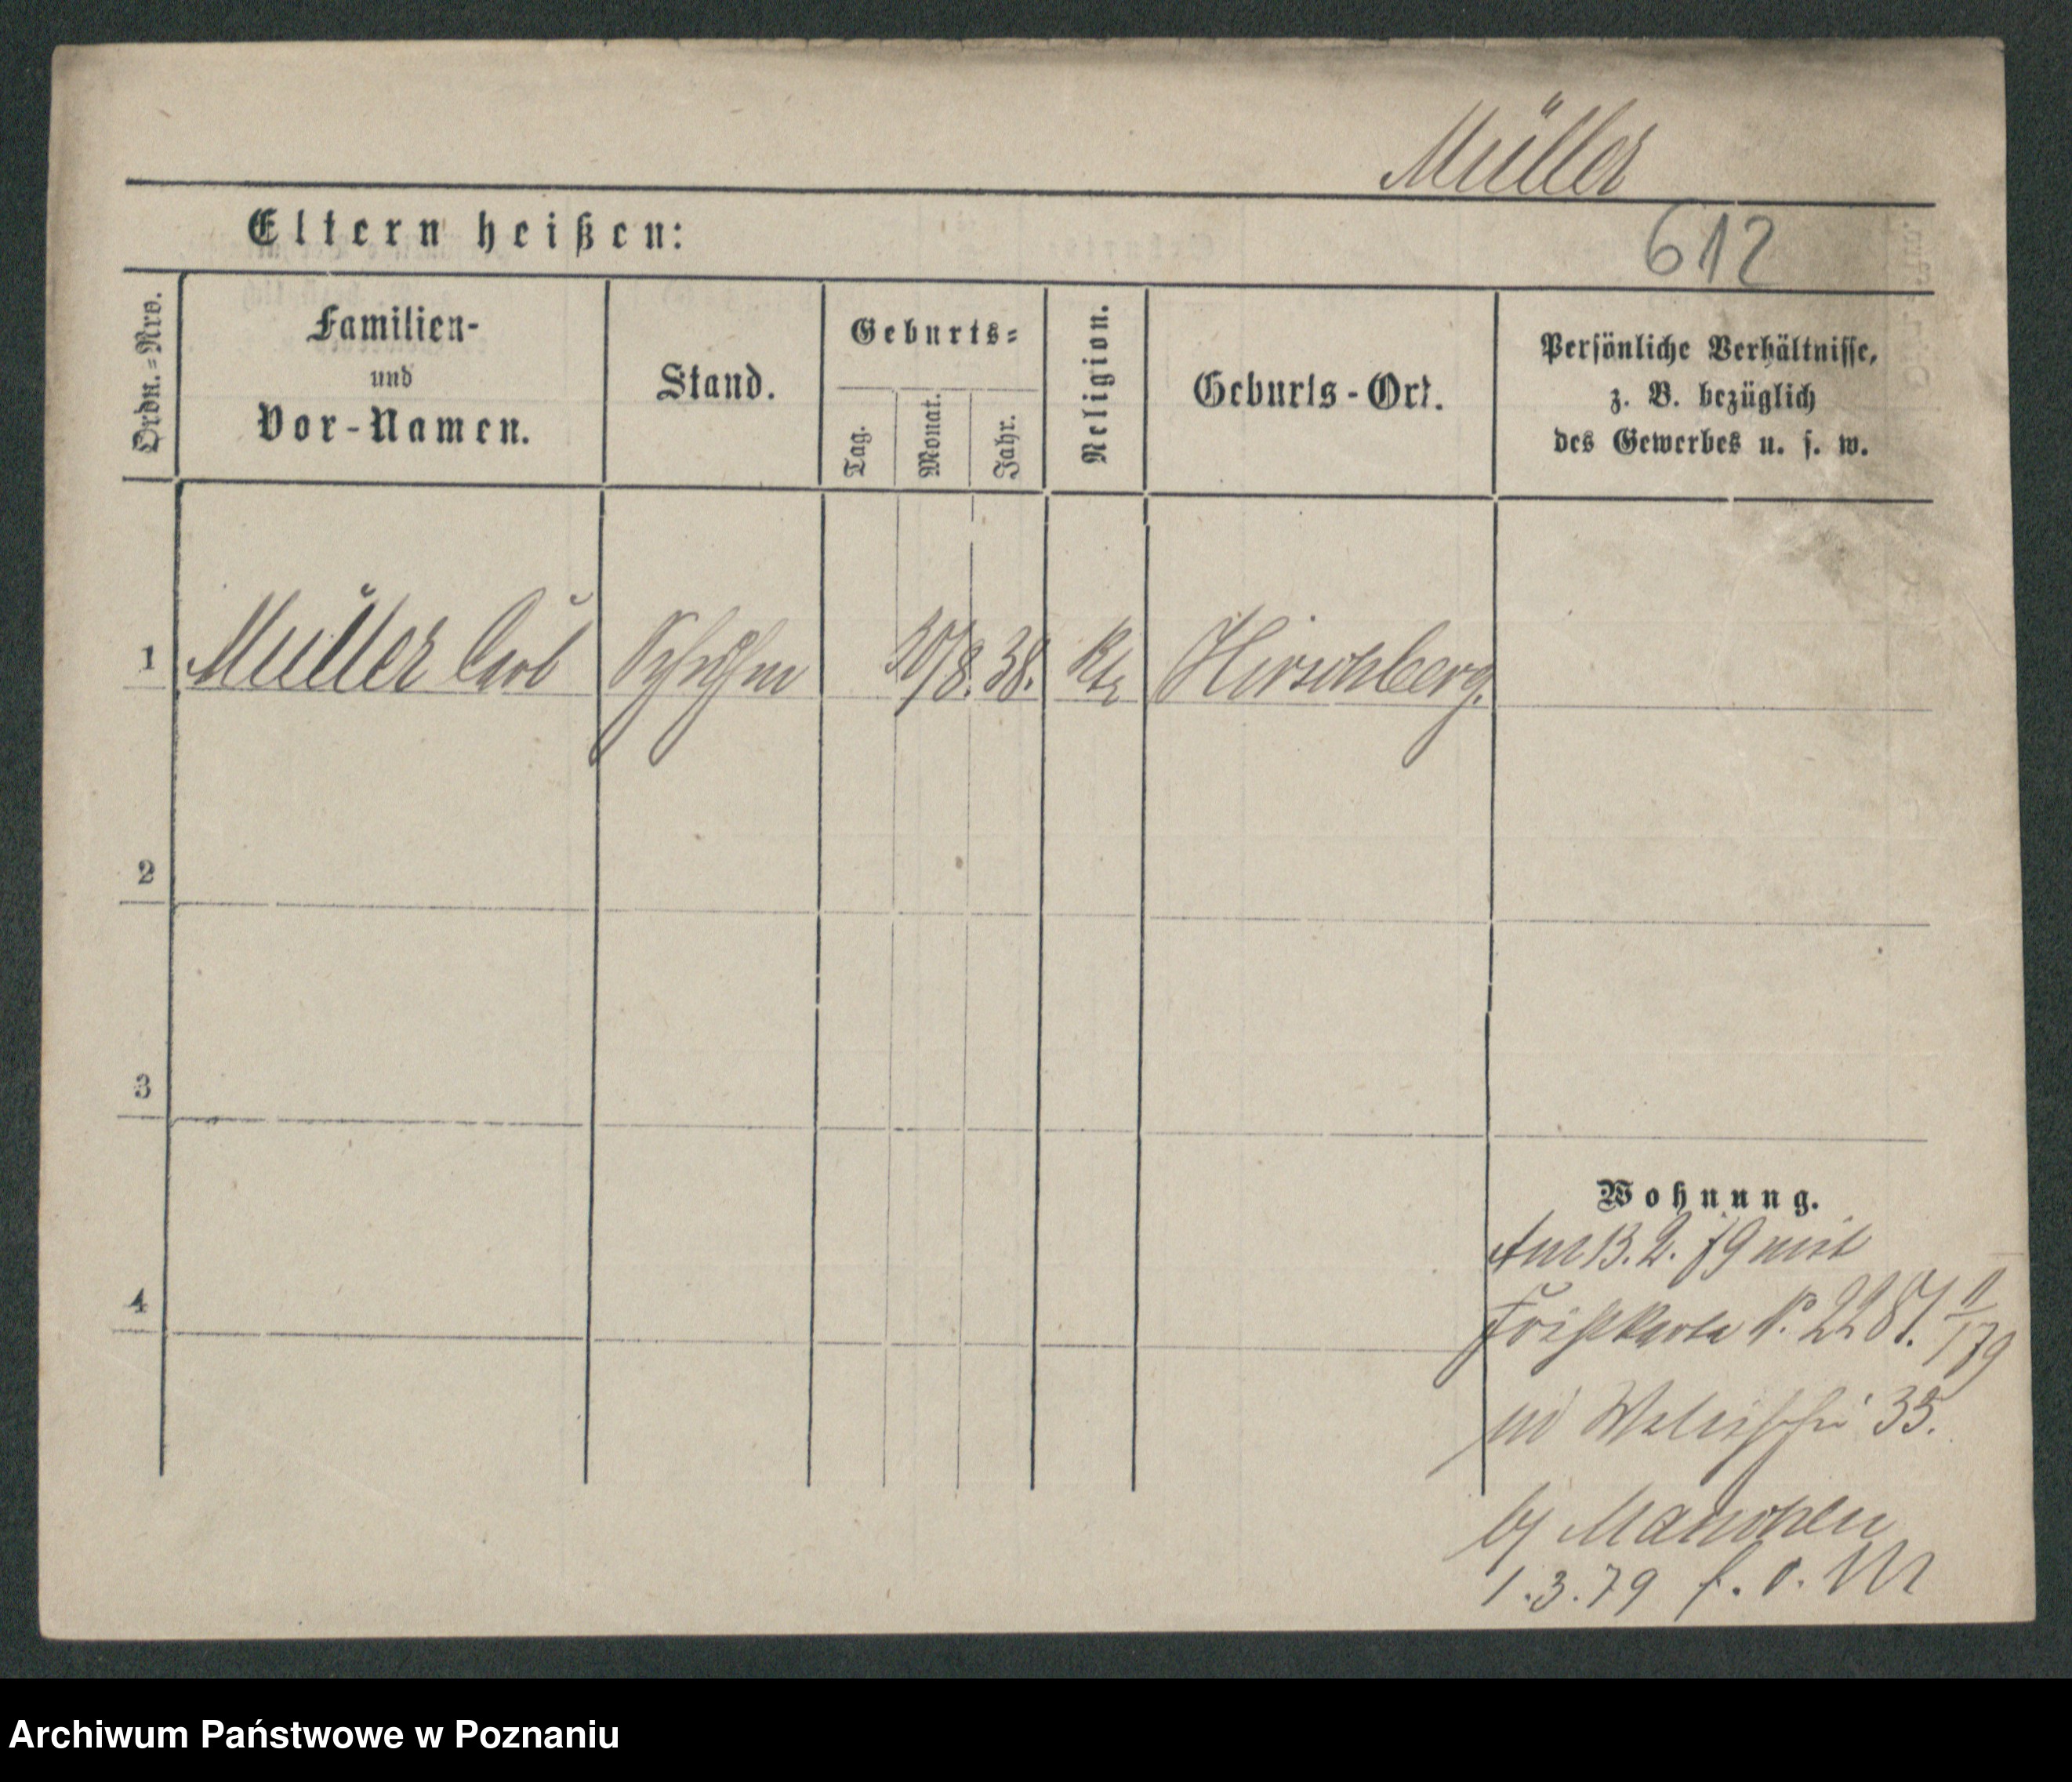 Müller
Eltern heißen:
612
Ordn.-Nro.
Familien-
und
Vor-Namen.
Stand.
Geburts-
Tag.
Monat.
Jahr.
Religion.
Geburts-Ort.
Persönliche Verhältnisse,
z. B. bezüglich
des Gewerbes u. s. w.
1 Müller Carl 38. Hirschberg.
2
3
Wohnung.
Am 13. 2. 79 mit
4
35.
1.3.79
Archiwum Państwowe w Poznaniu